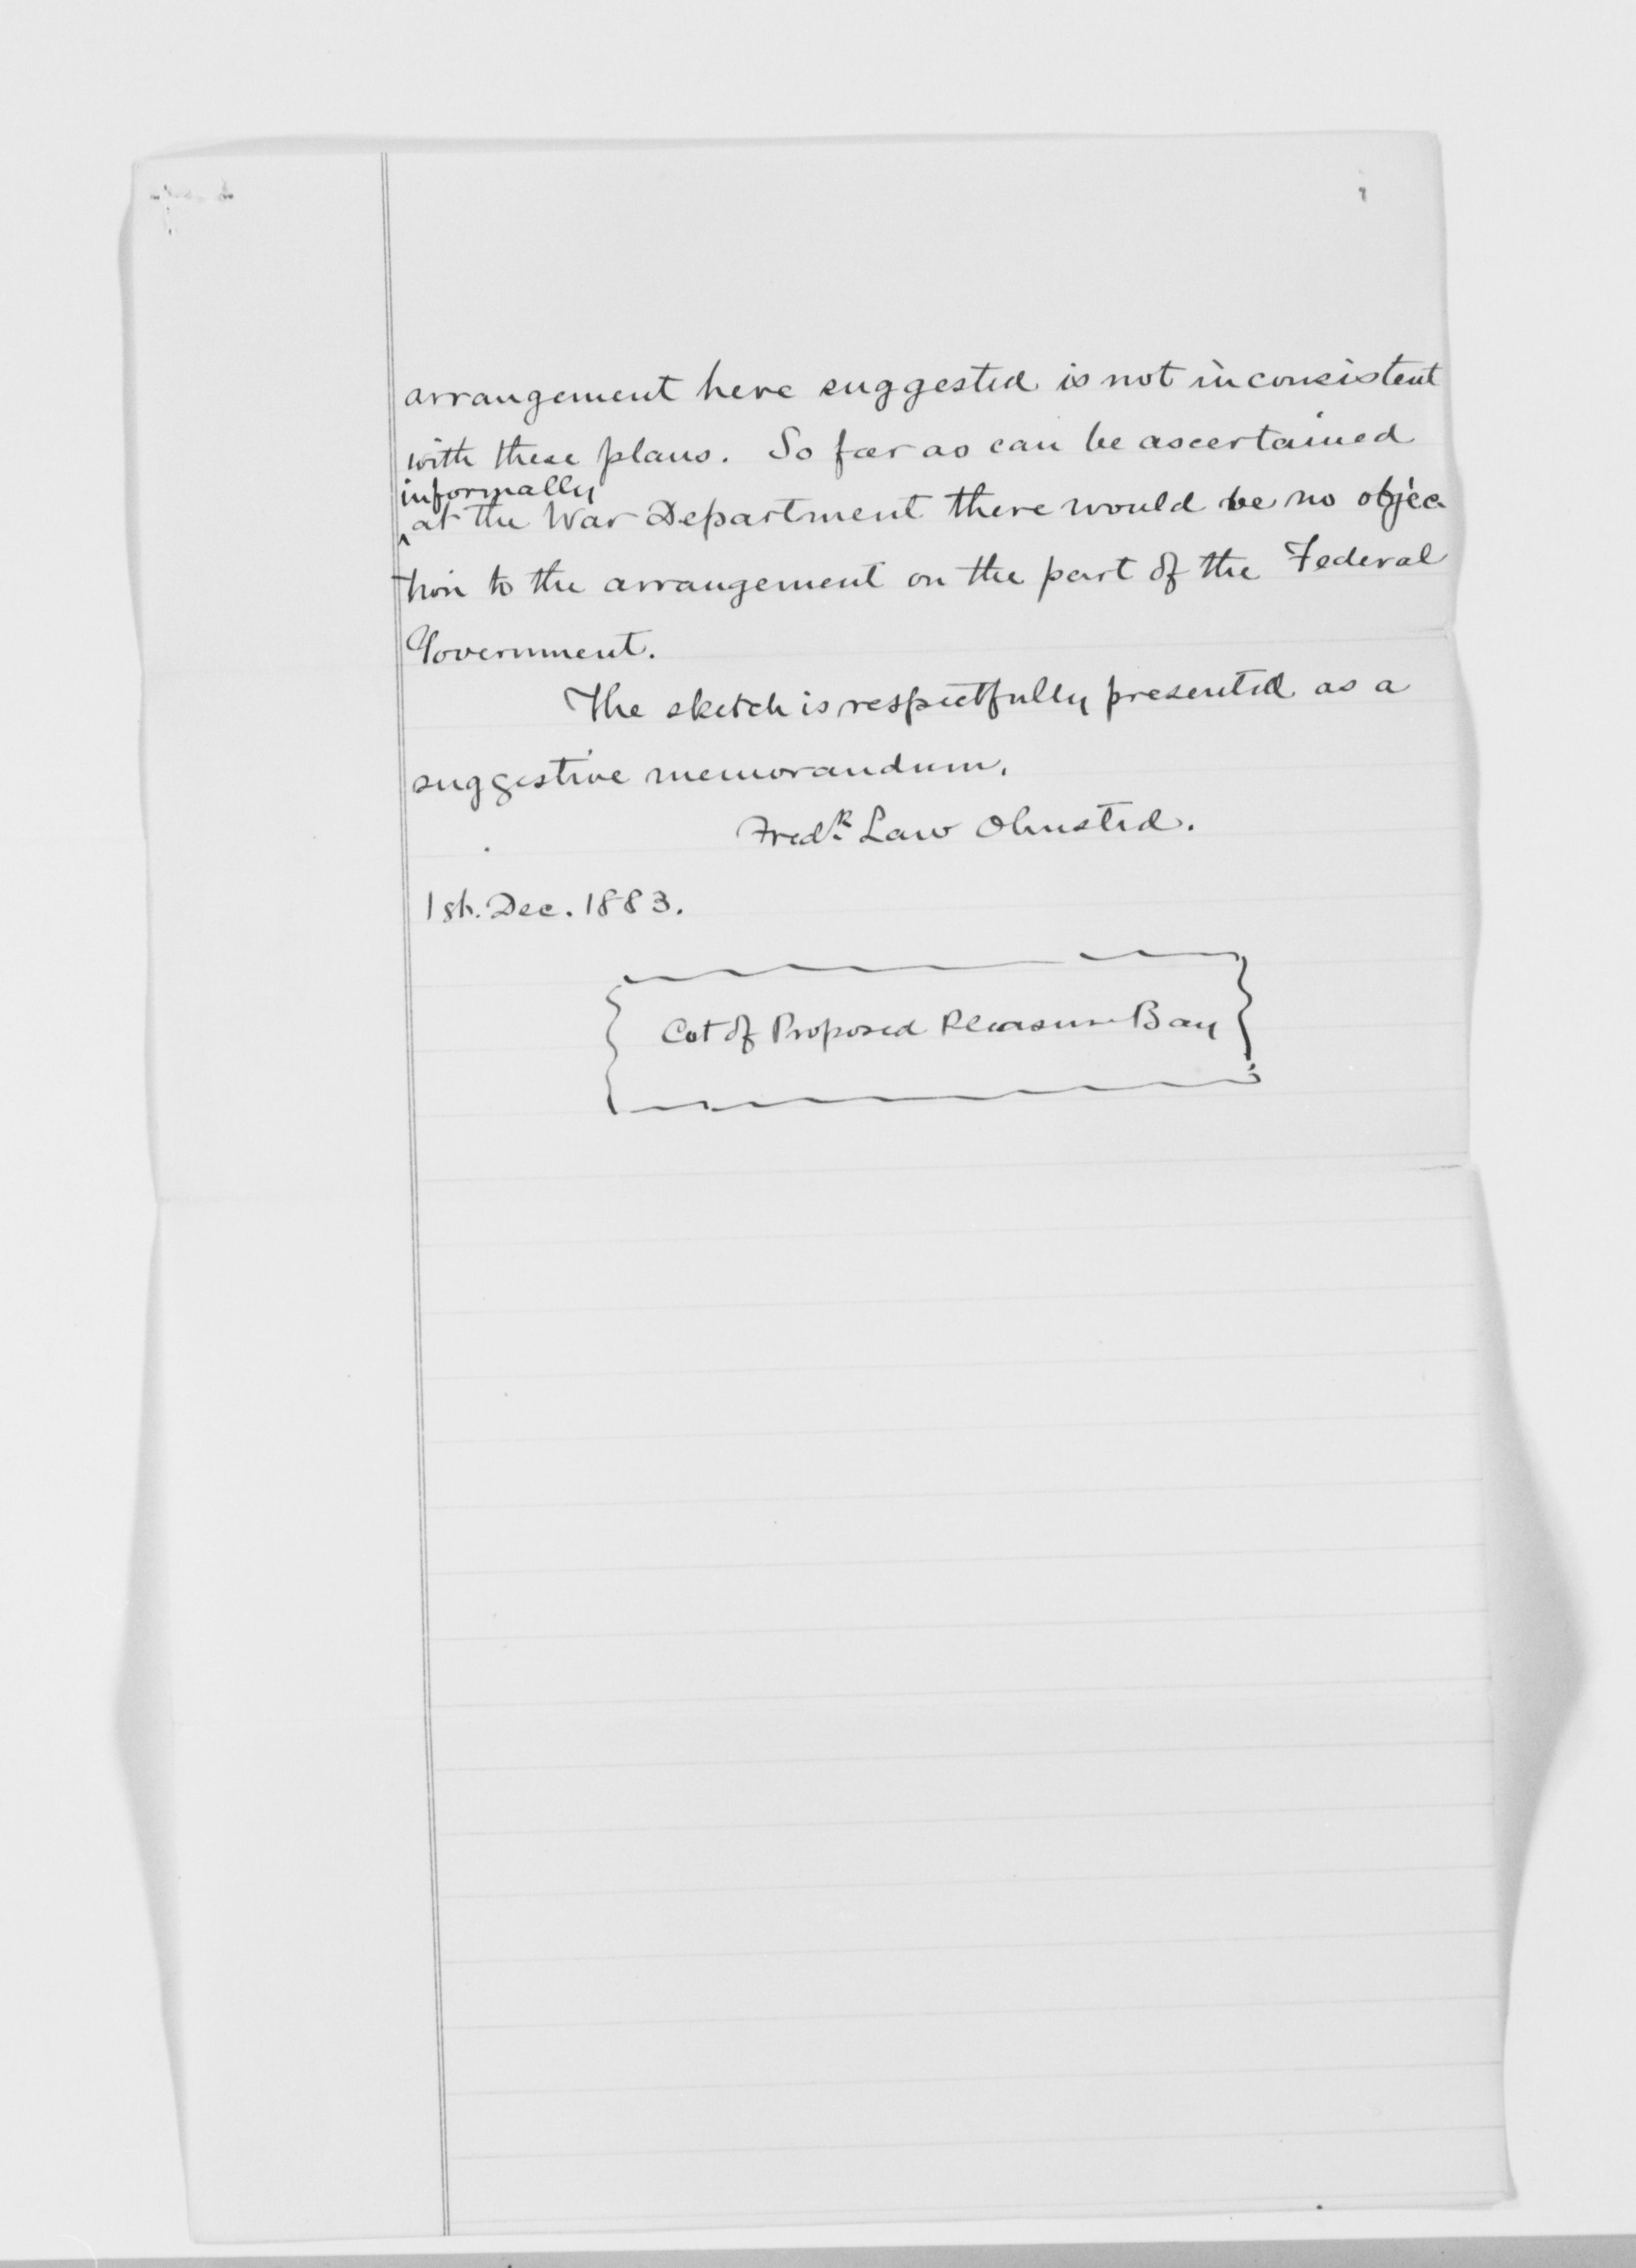 arrangement here suggested is not inconsistent
with these plans. So far as can be ascertained
informally
^at the War Department there would be no objec
tion to the arrangement on the part of the Federal
Government.
The sketch is respectfully presented as a
suggestive memorandum.
Fredk. Law Olmsted.
1st. Dec. 1883.
Cut of Proposed Pleasure Bay